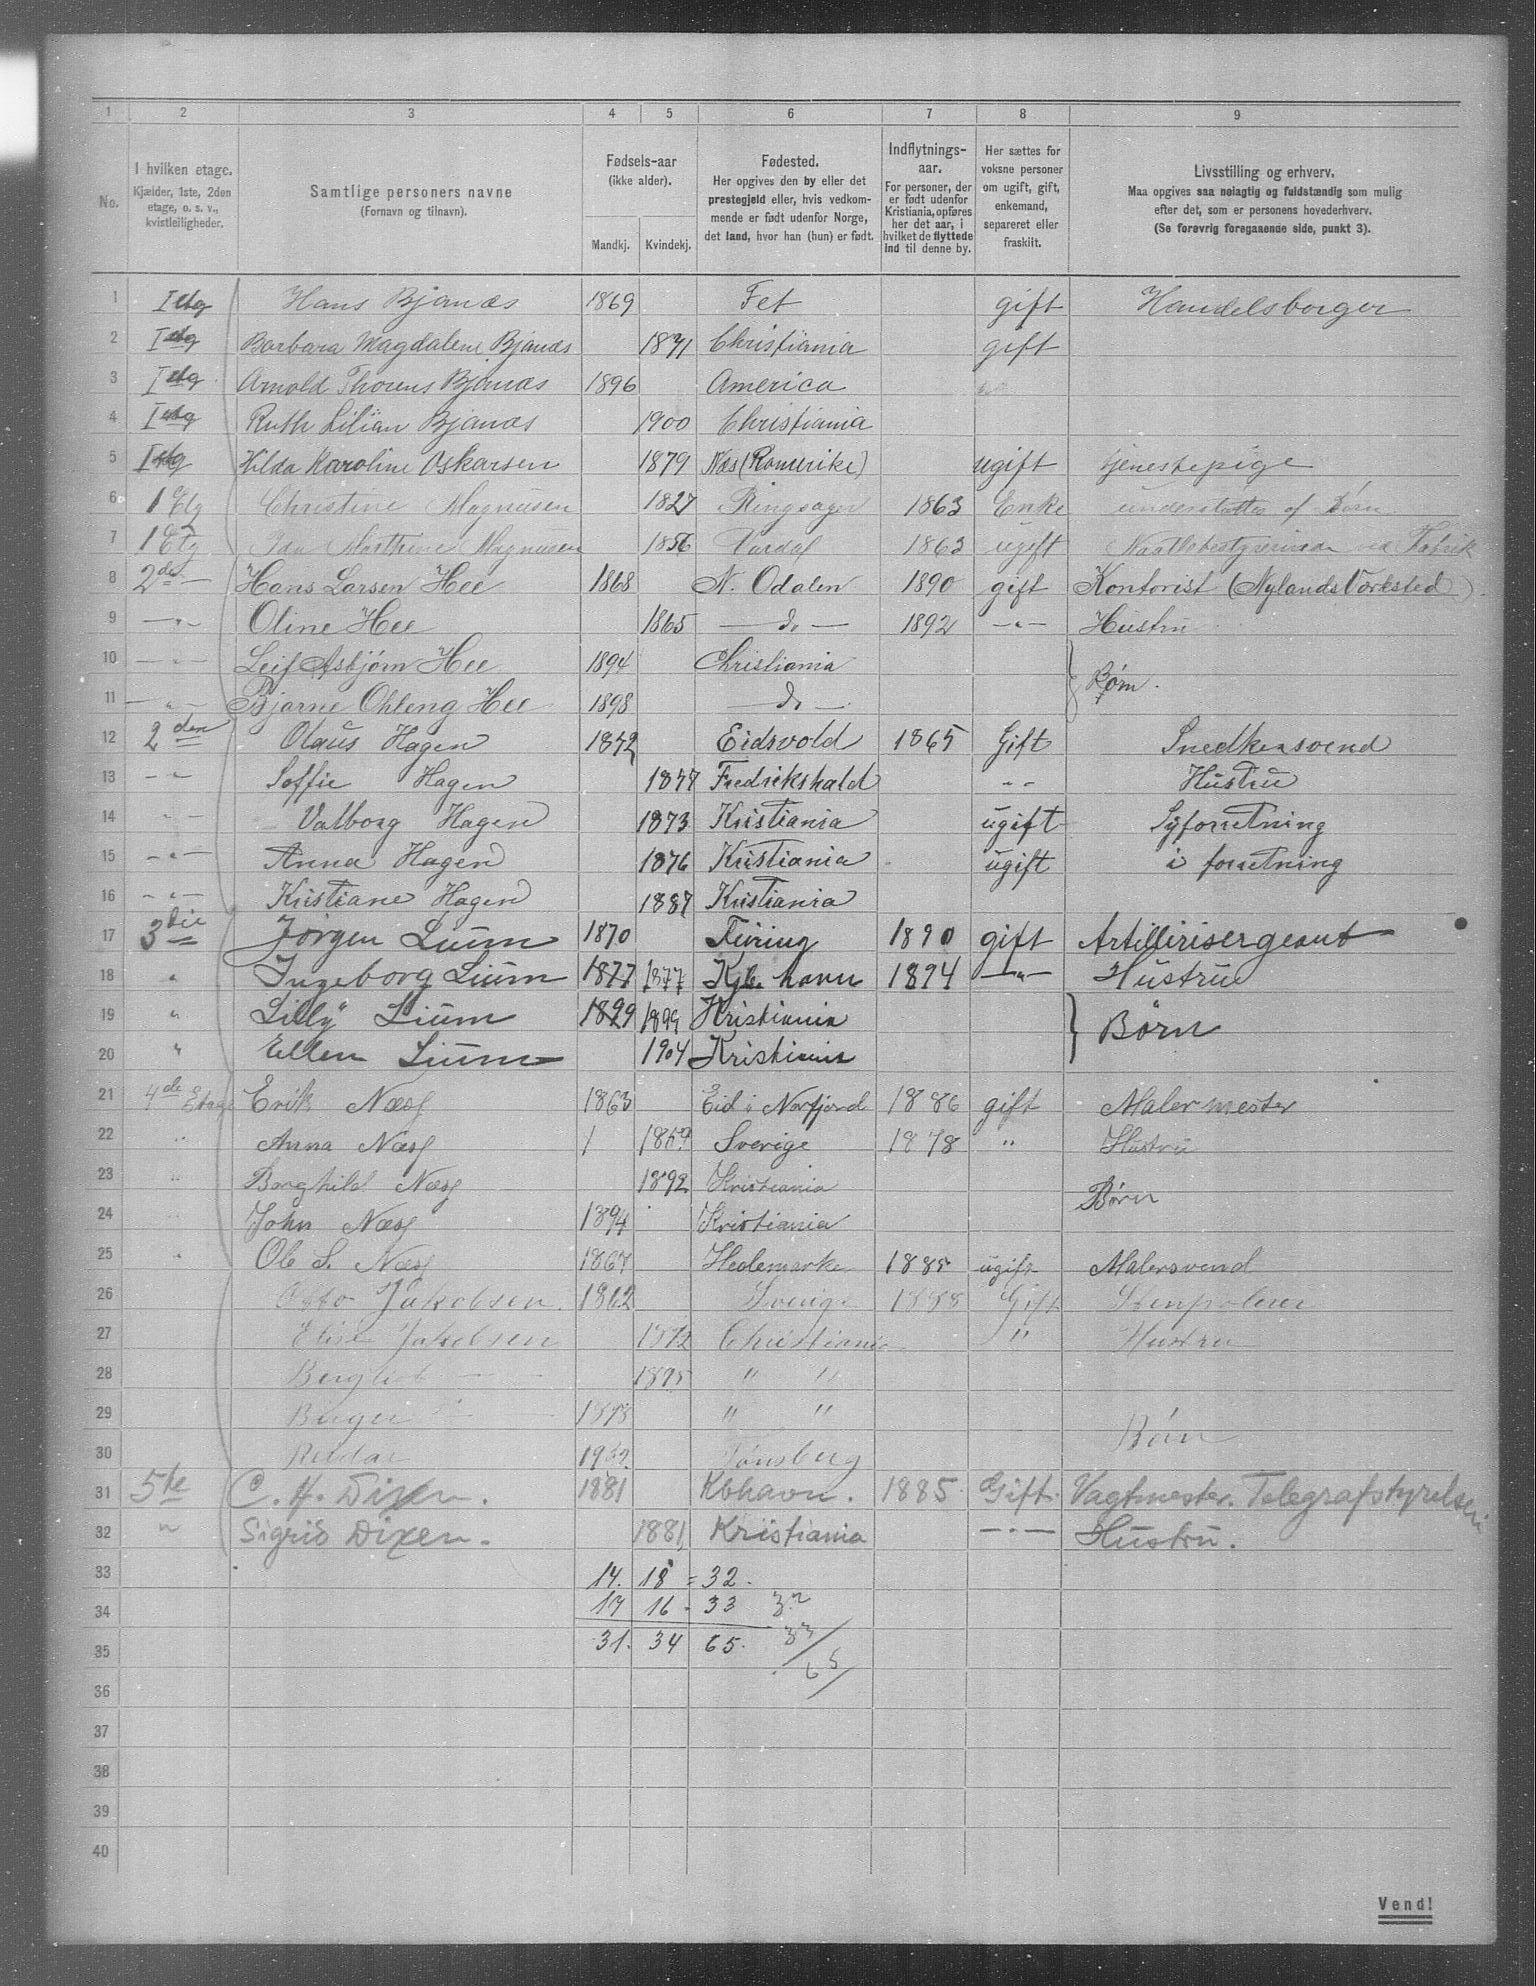 1 2 3 4 5 6 7 8 9
No.
I hvilken etage. Kjælder, 1ste, 2den etage, o. s. v., kvistleiligheder.
Samtlige personers navne (Fornavn og tilnavn).
Fødsels-aar (ikke alder). Mandkj. Kvindekj.
Fødested. Her opgives den by eller det prestegjeld eller, hvis vedkommende er født udenfor Norge, det land, hvor han (hun) er født.
Indflytnings-aar. For personer, der er født udenfor Kristiania, opføres her det aar, i hvilket de flyttede ind til denne by.
Her sættes for voksne personer om ugift, gift, enkemand, separeret eller fraskilt.
Livsstilling og erhverv. Maa opgives saa nøiagtig og fuldstændig som mulig efter det, som er personens hovederhverv. (Se forøvrig foregaaende side, punkt 3).
1 I etg Hans Bjanæs 1869 Fet gift Handelsborger
2 I etg Barbara Magdalene Bjanæs 1871 Christiania gift
3 I etg Arnold Thorens Bjanæs 1896 America
4 I etg Ruth Lilian Bjanæs 1900 Christiania
5 I etg Hilda Karoline Oskarsen 1879 Næs (Romerike) ugift tjenestepige
6 1 Etg Christine Magnusen 1827 Ringsager 1863 Enke understøttes af Børn
7 1 Etg Ida Marthine Magnusen 1856 Vardal 1863 ugift ved Fabrik
8 2de Hans Larsen Hee 1868 N. Odalen 1890 gift Kontorist (Nylands Værksted)
9 — " — Oline Hee 1865 — do — 1892 — " — Hustru
10 — " — Leif Asbjørn Hee 1894 Christiania } Børn.
11 — " — Bjarne Ohleng Hee 1898 — do —
12 2den Olaus Hagen 1842 Eidsvold 1865 Gift Snedkersvend
13 — " Soffie Hagen 1847 Fredrikshald " Hustru
14 — " Valborg Hagen 1873 Kristiania ugift Syforretning
15 — " — Anna Hagen 1876 Kristiania ugift i forretning
16 — " — Kristiane Hagen 1887 Kristiania
17 3die Jörgen Lium 1870 1890 gift Artillerisergeant
18 " Ingeborg Lium 1877 1877 Kjb. havn 1894 — " — Hustru
19 " Lilly Lium 1899 1899 Kristiania } Børn
20 " Ellen Lium 1904 Kristiania
21 4de Etage Erik Næss 1863 Eid i Norfjord 1886 gift Malermester
22 " Anna Næss 1859 Sverige 1878 " Hustru
23 " Borghild Næss 1892 Kristiania Børn
24 John Næss 1894 Kristiania
25 " Ole S. Næss 1867 Hedemarke 1885 ugift Malersvend
26 Otto Jakobsen 1862 Sverige 1888 Gift Stenpolerer
27 Elise Jakobsen 1872 Christiania " Hustru
28 Bergliot — 1895 " "
29 Birger — 1898 " " Børn
30 Reidar Tønsberg
31 5te C. H. Dixen. 1881 Kbhavn. 1885 Gift. Vagtmester. Telegrafstyrelsen
32 " Sigrid Dixen. 1881 Kristiania — " — Hustru.
33 14. 18 = 32.
34 17 16 - 33 32
35 31. 34 65. 33
65
36
37
38
39
40
Vend!